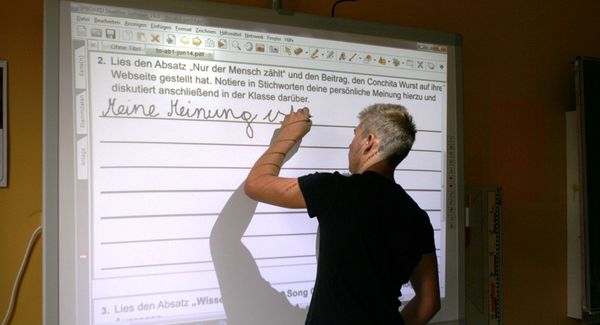 Datei Bearbeiten Anzeigen Einfügen Zeichnen Hilfsmittel Netzwerk Fenster Hilfe
Ohne Titel to-ab1-jun14.pdf
2. Lies den Absatz „Nur der Mensch zählt“ und den Beitrag, den Conchita Wurst auf ihre
Webseite gestellt hat. Notiere in Stichworten deine persönliche Meinung hierzu und
diskutiert anschließend in der Klasse darüber.
Meine Meinung
3. Lies den Absatz „Wisse Song